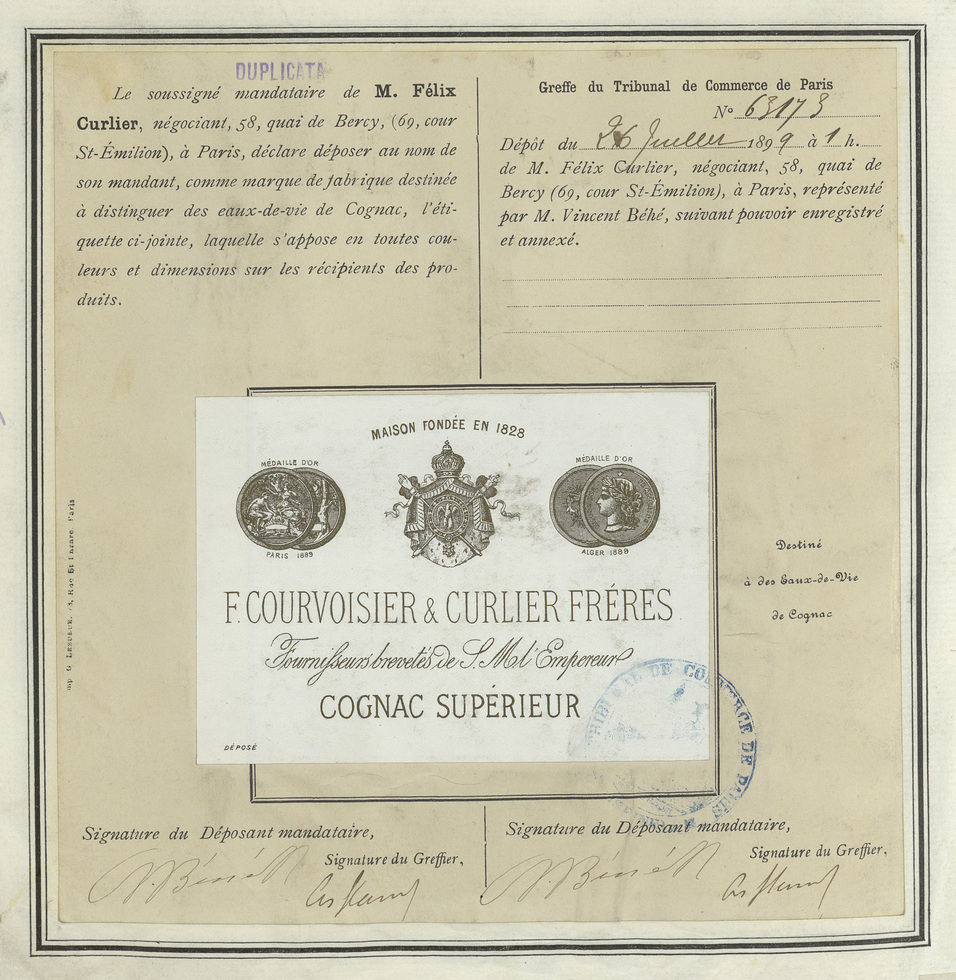 DUPLICATA
Le soussigné mandataire de M. Félix
Curlier, négociant, 58, quai de Bercy, (69, cour
St-Émilion), à Paris, déclare déposer au nom de
son mandant, comme marque de fabrique destinée
à distinguer des eaux-de-vie de Cognac, l'éti-
quette ci-jointe, laquelle s'appose en toutes cou-
leurs et dimensions sur les récipients des pro-
duits.
Greffe du Tribunal de Commerce de Paris
No 63173
Dépôt du 26 Juillet 1899 à 1 h.
de M. Félix Curlier, négociant, 58, quai de
Bercy (69, cour St-Émilion), à Paris, représenté
par M. Vincent Béhé, suivant pouvoir enregistré
et annexé.
MAISON FONDÉE EN 1828
MÉDAILLE D'OR
PARIS 1889
MÉDAILLE D'OR
ALGER 1889
F. COURVOISIER & CURLIER FRÉRES
Fournisseurs brevetés de S. M. l'Empereur
COGNAC SUPÉRIEUR
DÉPOSÉ
Destiné
à des Eaux-de-Vie
de Cognac
TRIBUNAL DE COMMERCE DE PARIS
Signature du Déposant mandataire,
Signature du Greffier,
Signature du Déposant mandataire,
Signature du Greffier,